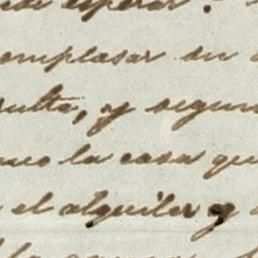 esperar.
emplasar su
sulta, y segun
la casa que
el alquiler y